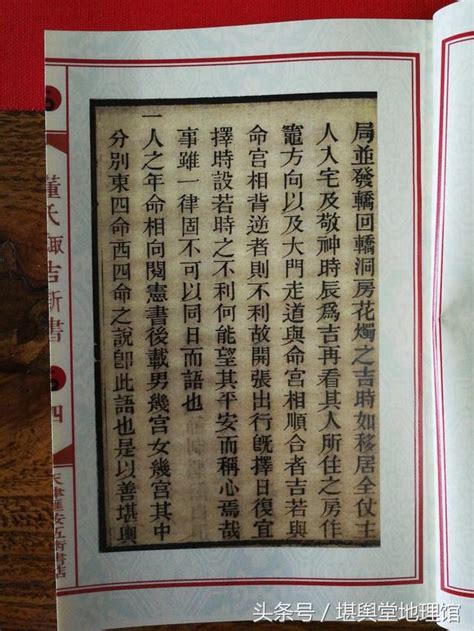 局並發轎回轎洞房花燭之吉時如移居全仗主
人入宅及敬神時辰為吉再看其人所住之房作
竈方向以及大門走道與命宮相順合者吉若與
命宮相背逆者則不利故開張出行旣擇日復宜
擇時設若時之不利何能望其平安而稱心焉哉
事雖一律固不可以同日而語也
一人之年命相向閱憲書後載男幾宮女幾宮其中
分別東四命西四命之說卽此語也是以善堪輿
董氏諏吉新書
四
天津匯安五術書店
头条号 / 堪舆堂地理馆